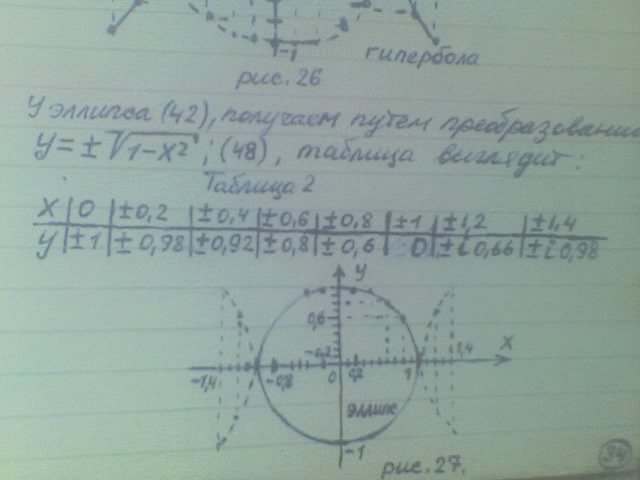 -1
гипербола
рис. 26
У эллипса (42), получаем путем преобразования
y = ± √1-x²; (48), таблица выглядит:
Таблица 2
X | 0 | ±0,2 | ±0,4 | ±0,6 | ±0,8 | ±1 | ±1,2 | ±1,4
y | ±1 | ±0,98 | ±0,92 | ±0,8 | ±0,6 | 0 | ±i0,66 | ±i0,98
y
0,6
0,2
X
-1,4 -0,8 0 0,2 1 1,4
эллипс
-1
рис. 27.
34